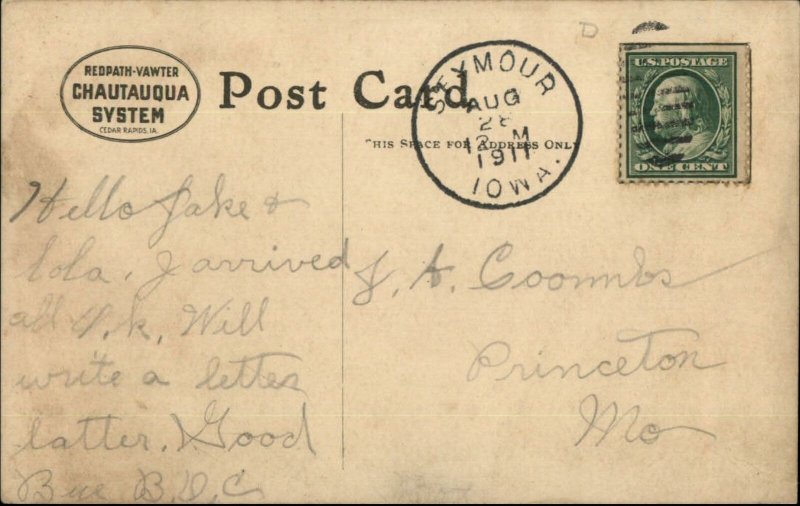 REDPATH-VAWTER
CHAUTAUQUA
SYSTEM
CEDAR RAPIDS, IA.
Post Card
THIS SPACE FOR ADDRESS ONLY
SEYMOUR
AUG
28
12 M
1911
IOWA.
D
U.S. POSTAGE
ONE CENT
Hello Jake &
lola. I arrived
all O.k. Will
write a letter
latter. Good
Bue B.D.C
J. A. Coombs
Princeton
Mo